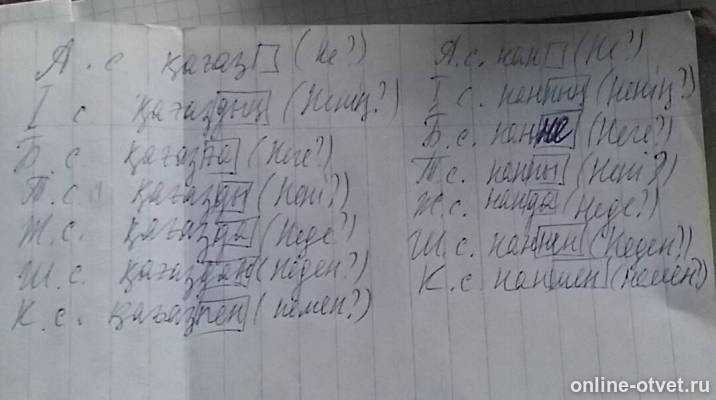 А. с қағаз (не?)
І с қағаздың (Ненің?)
Б. с қағазға (Неге?)
Т. с қағазды (Нені?)
Ж. с. қағазда (Неде?)
Ш. с. қағаздан (Неден?)
К. с. қағазпен (немен?)
А. с. нан (Не?)
І с. нанның (Ненің?)
Б. с. нанне (Неге?)
Т с. нанны (Нені?)
Ж с. нанда (Неде?)
Ш. с. наннан (Неден?)
К. с нанмен (немен?)
online-otvet.ru